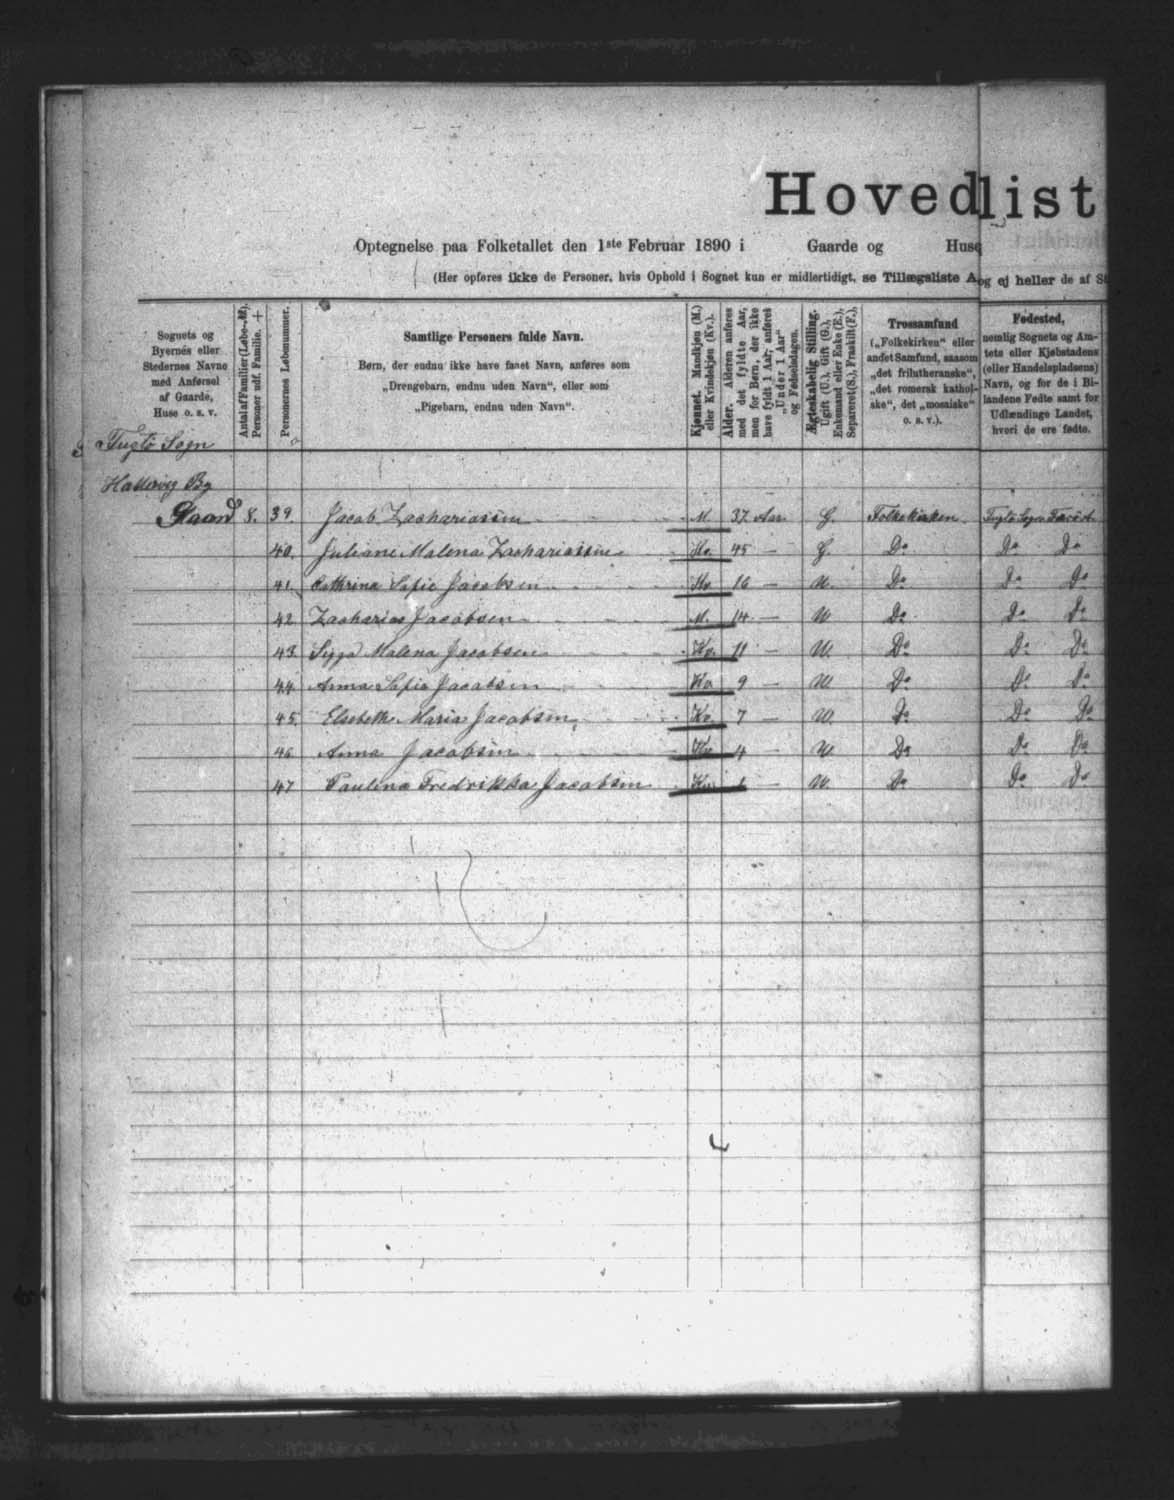 Hovedlist
Optegnelse paa Folketallet den 1ste Februar 1890 i Gaarde og Huse
(Her opføres ikke de Personer, hvis Ophold i Sognet kun er midlertidigt, se Tillægsliste A og ej heller de af S
Sognets og Byernes eller Stedernes Navne med Anførsel af Gaarde, Huse o. s. v.
Antal af Familier (Løbe-№). Personer udf. Familie. +
Personernes Løbenummer.
Samtlige Personers fulde Navn.
Børn, der endnu ikke have faaet Navn, anføres som
„Drengebarn, endnu uden Navn“, eller som
„Pigebarn, endnu uden Navn“.
Kjønnet. Mandkjøn (M.) eller Kvindekjøn (Kv.).
Alder. Alderen anføres med det fyldte Aar, men for Børn, der ikke have fyldt 1 Aar, anføres „Under 1 Aar“ og Fødselsdagen.
Ægteskabelig Stilling. Ugift (U.), Gift (G.), Enkemand eller Enke (E.), Separeret (S.), Fraskilt (F.).
Trossamfund
(„Folkekirken“ eller andet Samfund, saasom „det frilutheranske“, „det romersk katholske“, det „mosaiske“ o. s. v.).
Fødested,
nemlig Sognets og Amtets eller Kjøbstadens (eller Handelspladsens) Navn, og for de i Bilandene Fødte samt for Udlændinge Landet, hvori de ere fødte.
Fuglø Sogn
Hattervig By
Gaard 8. 39. Jacob Zachariassen M. 37 Aar G. Folkekirken Fuglø Sogn Færø A
40. Juliane Malena Zachariassen Kv. 45 — G. Do Do Do
41. Cathrina Sofie Jacobsen Kv. 16 — U. Do Do Do
42 Zacharias Jacobsen M. 14. — U Do Do Do
43. Sigga Malena Jacobsen Kv. 11 — U. Do Do Do
44. Anna Sofia Jacobsen Kv 9 — U Do Do Do
45. Elsebeth Maria Jacobsen Kv. 7 — U. Do Do Do
46 Anna Jacobsen Kv 4 — U Do Do Do
47 Paulina Fredrikka Jacobsen Kv. 1 — U. Do Do Do